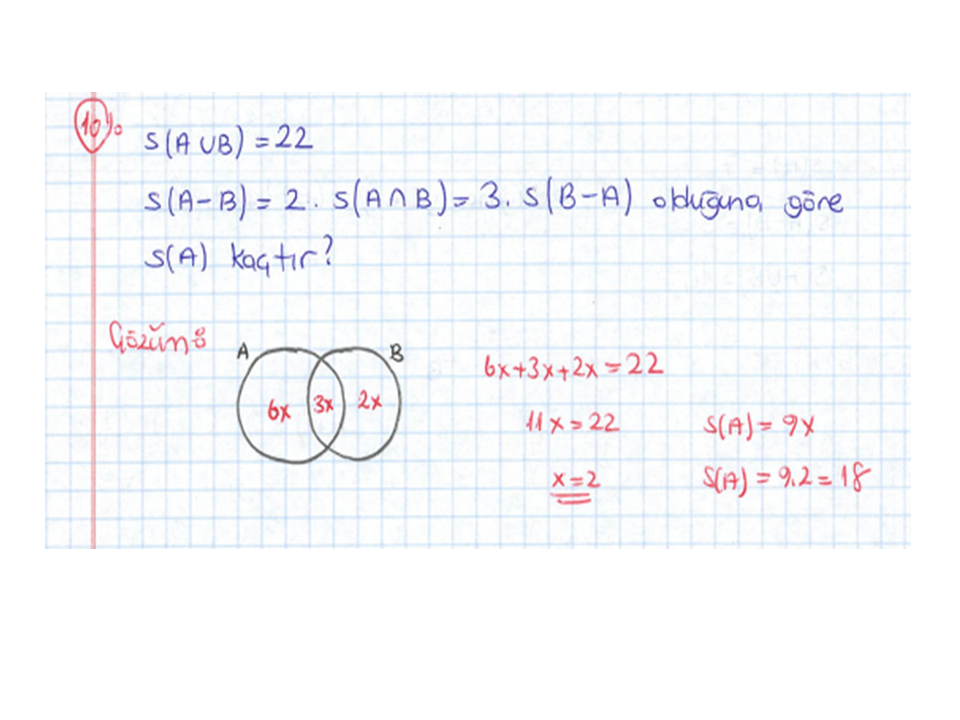 10)
S(A∪B) = 22
S(A-B) = 2. S(A∩B) = 3. S(B-A) olduğuna göre
S(A) kaçtır?
Çözüm:
A B
6x 3x 2x
6x+3x+2x = 22
11x = 22 S(A) = 9x
x = 2 S(A) = 9.2 = 18